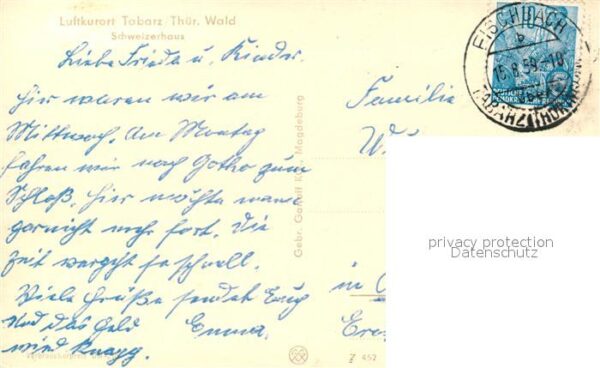 Luftkurort Tabarz Thür. Wald
Schweizerhaus
Liebe Frieda u. Kinder.
Hier waren wir am
Mittwoch. Am Montag
fahren wir nach Gotha zum
Schloß, hier möchte man
garnicht mehr fort. Die
Zeit vergeht so schnell.
Viele Grüße sendet Euch
Und das Geld Emma.
wird knapp.
Gebr. Garloff KG., Magdeburg
Familie
W
in
FISCHBACH
b
16.8.59.-10
TABARZ (THÜR
10
privacy protection
Datenschutz
Z 452